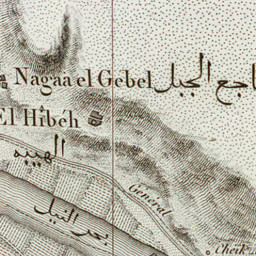 Nagaà el Gebel ناجع الجبل
El Hibéh
الهيبه
بحر النيل
Général
Cheik